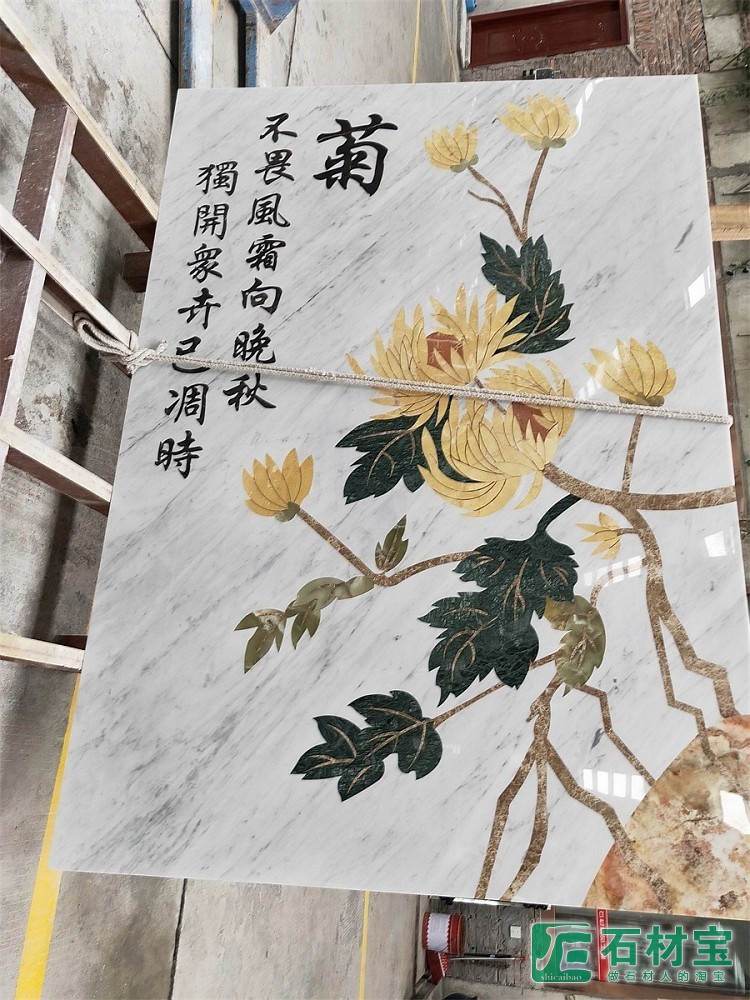 菊
不畏風霜向晚秋
獨開衆卉已凋時
石材宝
shicaibao
做石材人的淘宝